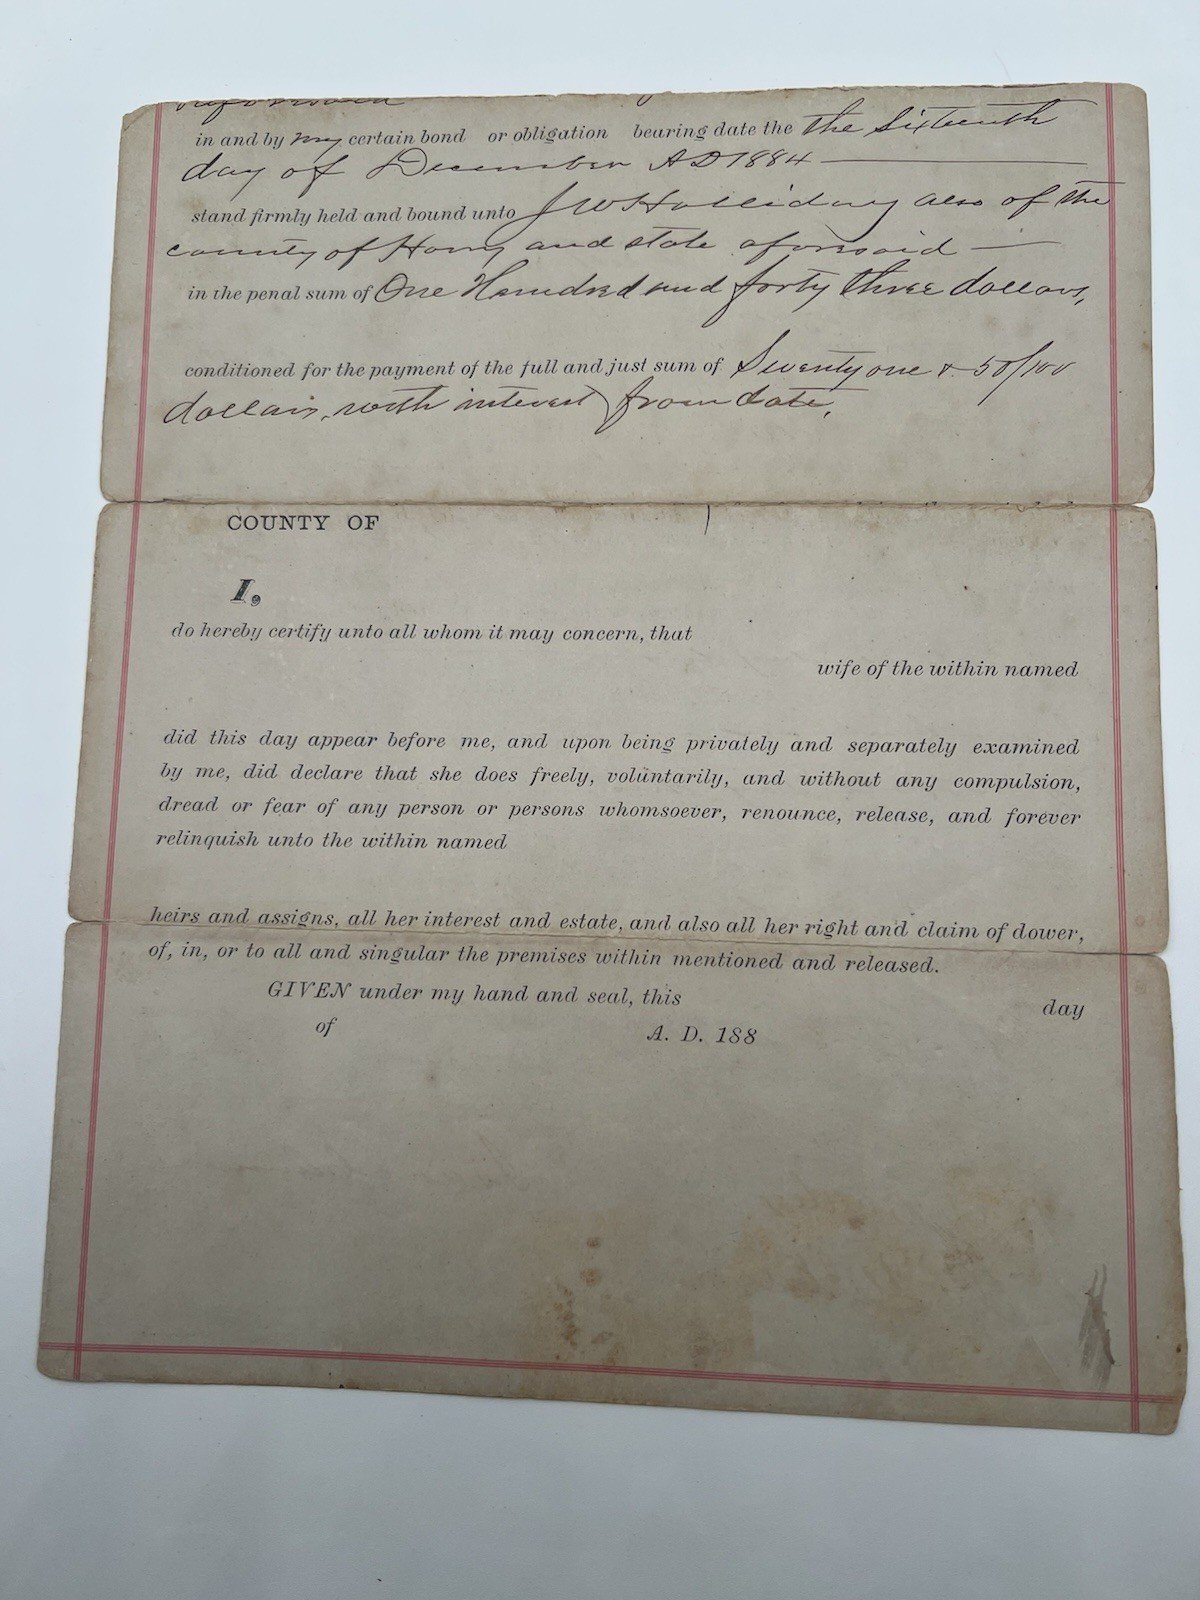 aforesaid
in and by my certain bond or obligation bearing date the the Sixteenth
day of December AD 1884
stand firmly held and bound unto J W Holliday also of the
county of Horry and state aforesaid
in the penal sum of One Hundred and forty three dollars,
conditioned for the payment of the full and just sum of Seventy one & 50/100
dollars, with interest from date,
COUNTY OF
I,
do hereby certify unto all whom it may concern, that
wife of the within named
did this day appear before me, and upon being privately and separately examined
by me, did declare that she does freely, voluntarily, and without any compulsion,
dread or fear of any person or persons whomsoever, renounce, release, and forever
relinquish unto the within named
heirs and assigns, all her interest and estate, and also all her right and claim of dower,
of, in, or to all and singular the premises within mentioned and released.
GIVEN under my hand and seal, this day
of A. D. 188